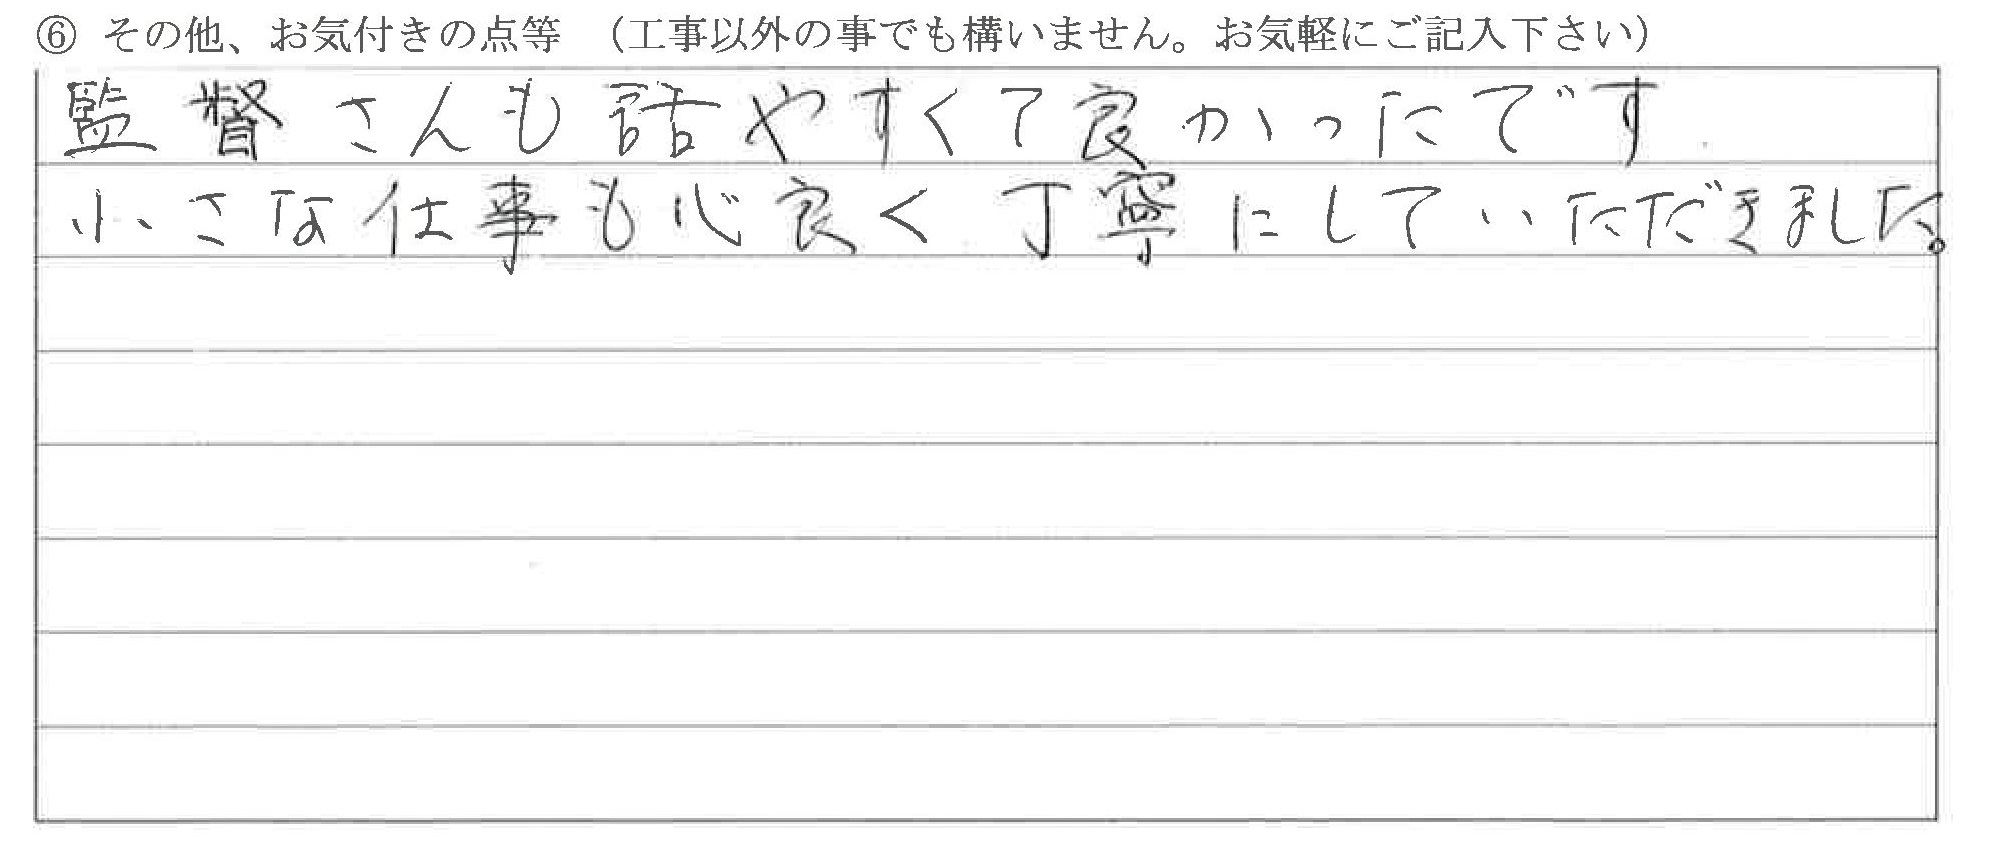 ⑥ その他、お気付きの点等 （工事以外の事でも構いません。お気軽にご記入下さい）
監督さんも話やすくて良かったです.
小さな仕事も心良く丁寧にしていただきました。